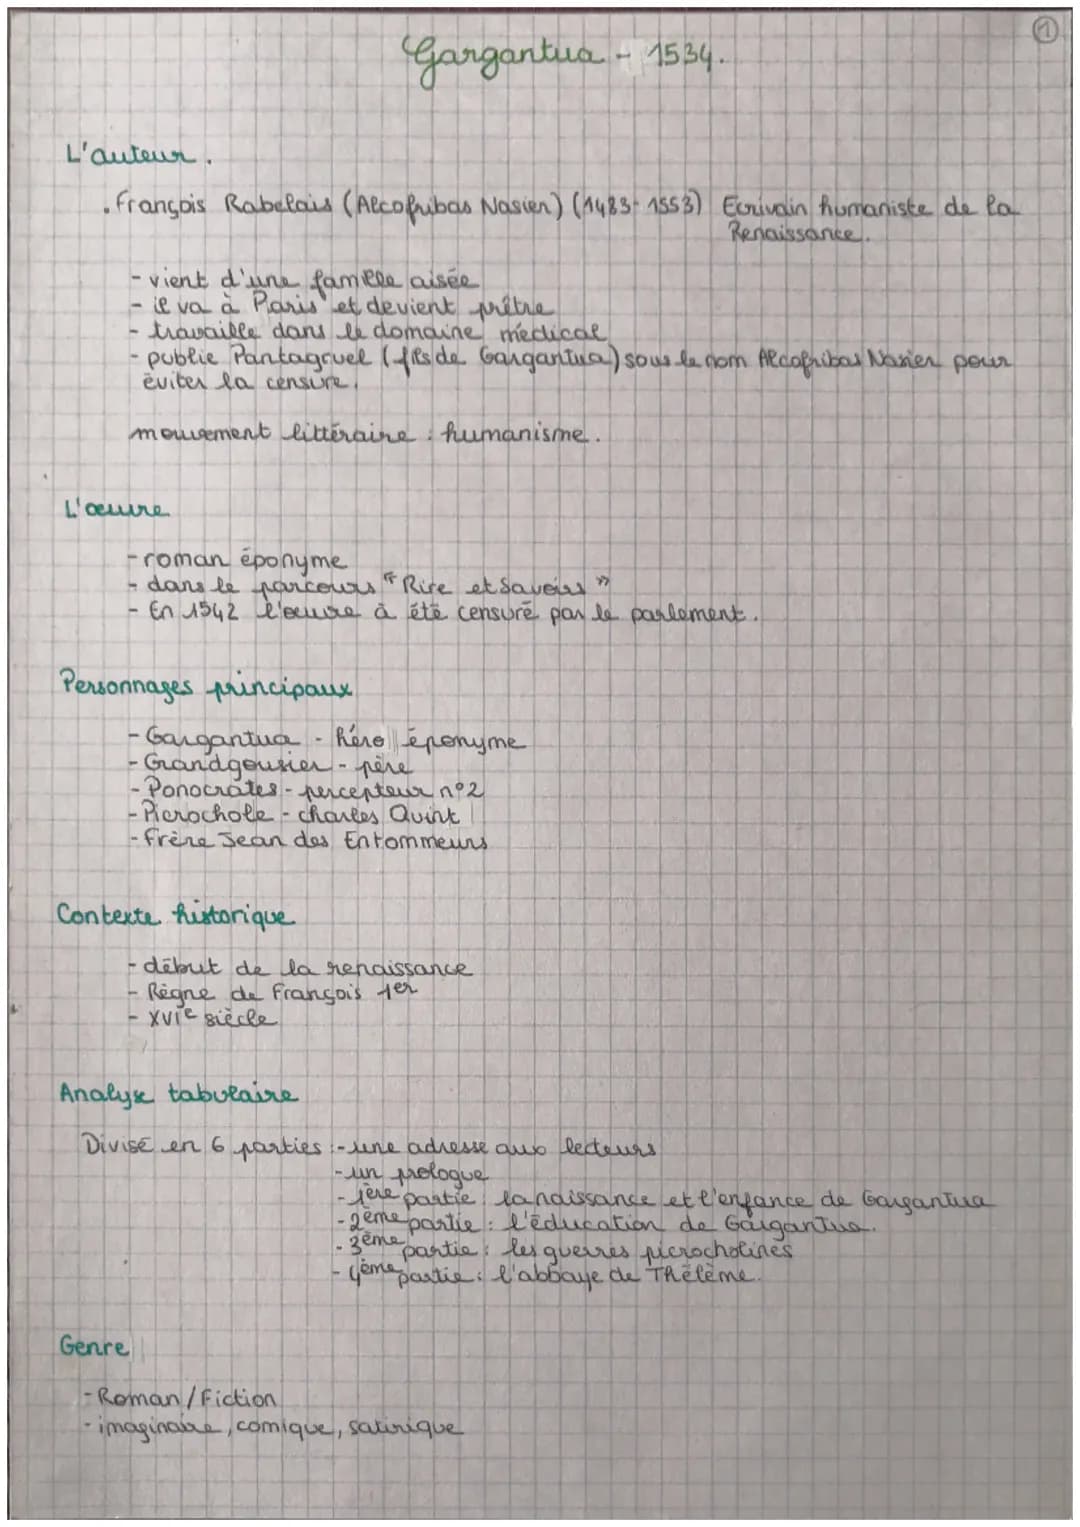 ①
Gargantua - 1534.
L'auteur.
. François Rabelais (Alcofribas Nasier) (1483-1553) Ecrivain humaniste de la
Renaissance.
- vient d'une famille aisée
- il va à Paris et devient prêtre
- travaille dans le domaine médical
- publie Pantagruel (fils de Gargantua) sous le nom Alcofribas Nasier pour
éviter la censure.
mouvement littéraire : humanisme.
L'œuvre
- roman éponyme
- dans le parcours "Rire et Savoirs"
- En 1542 l'œuvre à été censuré par le parlement.
Personnages principaux
- Gargantua - héro éponyme
- Grandgousier - père
- Ponocrates - percepteur n°2
- Picrochole - charles Quint
- Frère Jean des Entommeurs
Contexte historique
- début de la renaissance
- Règne de François 1er
- XVIe siècle
Analyse tabulaire
Divisé en 6 parties : - une adresse aux lecteurs
- un prologue
- 1ère partie : la naissance et l'enfance de Gargantua
- 2ème partie : l'éducation de Gargantua.
- 3ème partie : les guerres picrocholines
- 4ème partie : l'abbaye de Thélème.
Genre
- Roman / Fiction
- imaginaire, comique, satirique